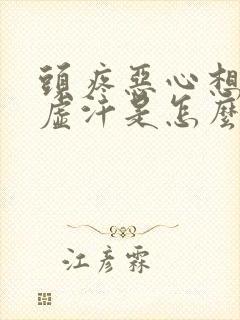 頭疼惡心想
虛汗是怎麼
江彥霖